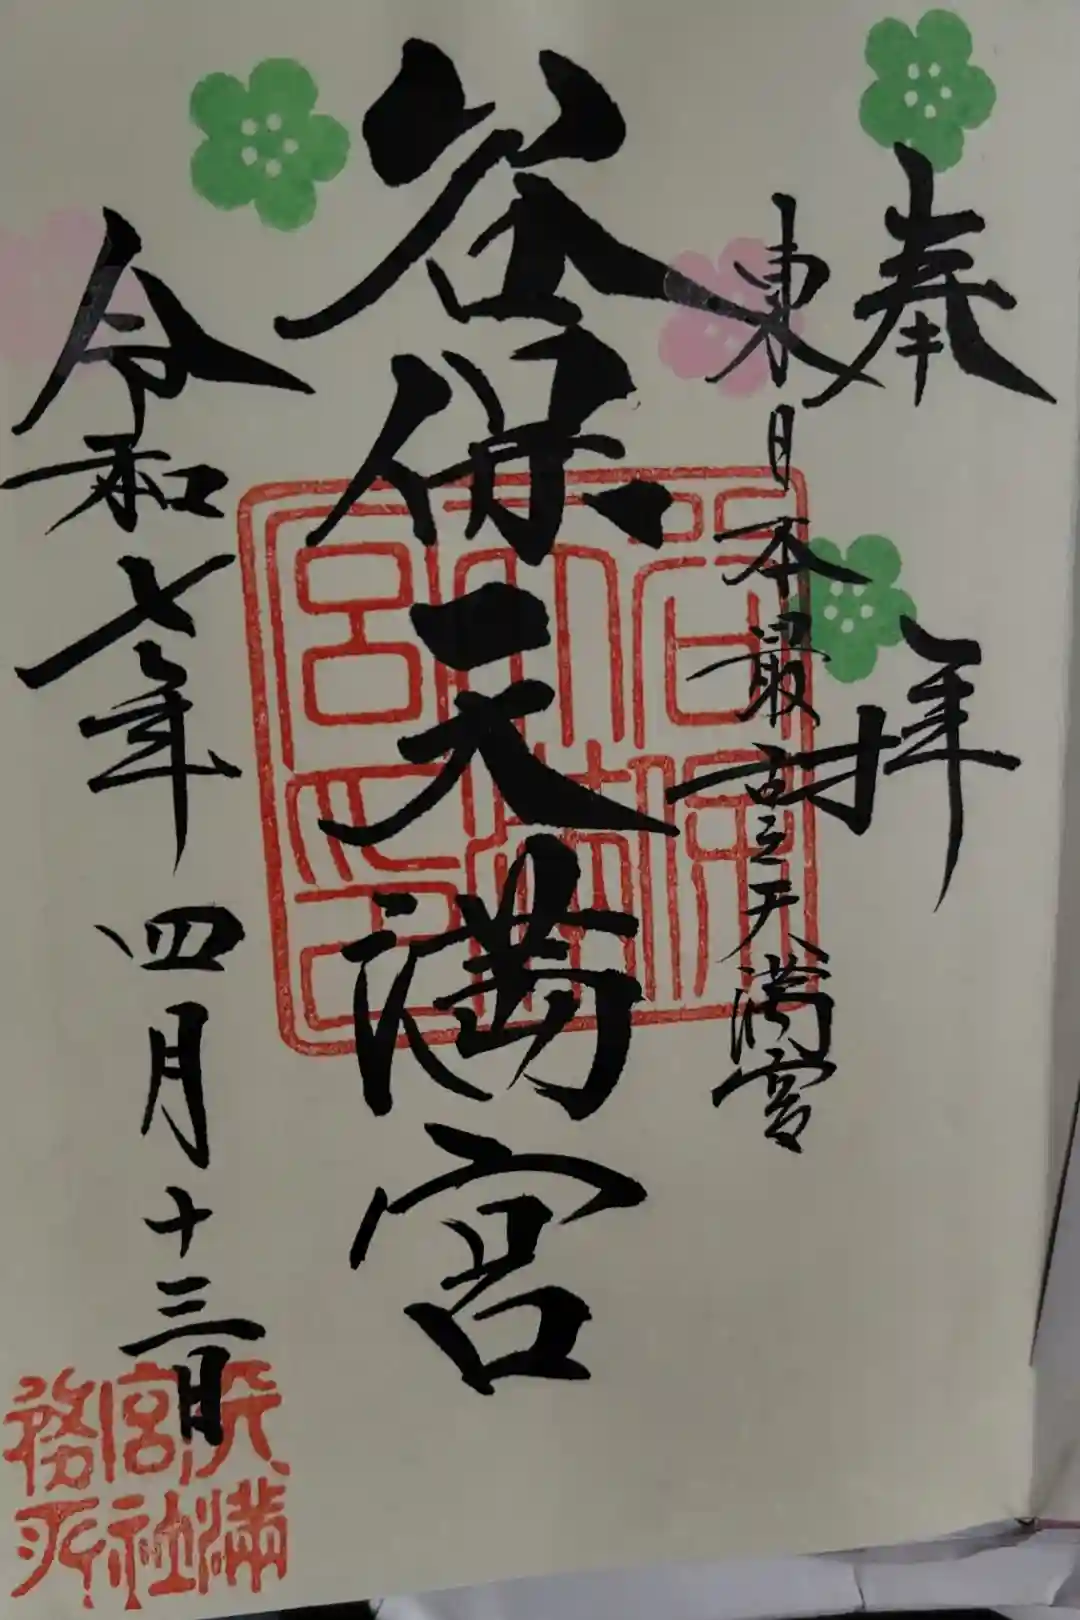 奉拝
東日本最古之天満宮
谷保天満宮
令和七年四月十三日
谷保天満宮之印
天満宮社務所